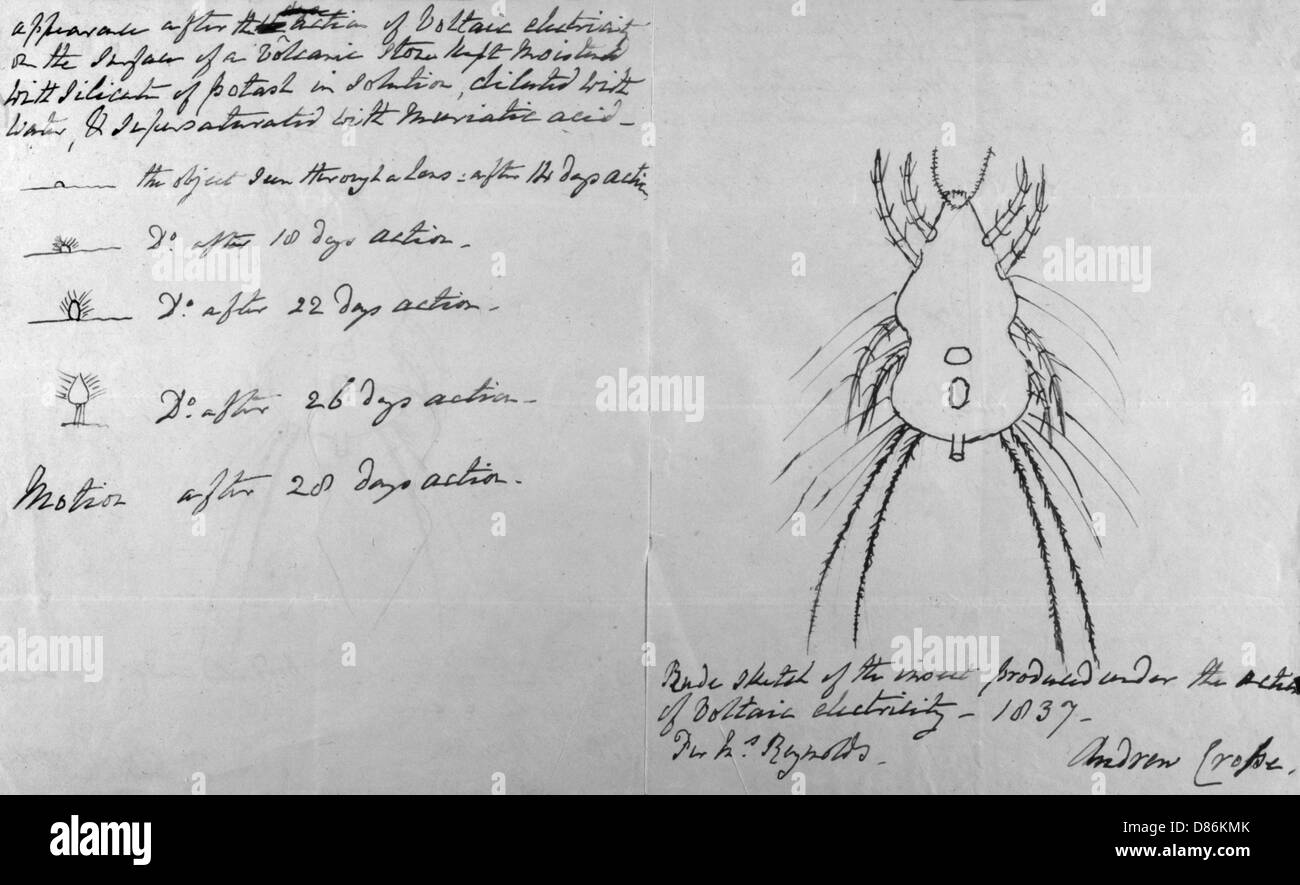 appearance after the action of Voltaic electricity
on the surface of a Volcanic Stone kept moistened
with Silicate of potash in solution, diluted with
water, & supersaturated with Muriatic acid –
the object seen through a lens : after 14 days action
Do. after 18 days action –
Do. after 22 days action –
Do. after 26 days action –
Motion after 28 days action –
Rude sketch of the insect produced under the action
of Voltaic electricity – 1837 –
For Mrs Reynolds –
Andrew Crosse.
alamy
alamy
Image ID: D86KMK
www.alamy.com